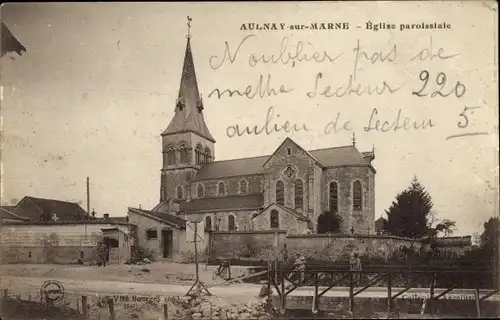 AULNAY-sur-MARNE - Église paroissiale
N'oublier pas de
mettre Secteur 220
au lien de Secteur 5